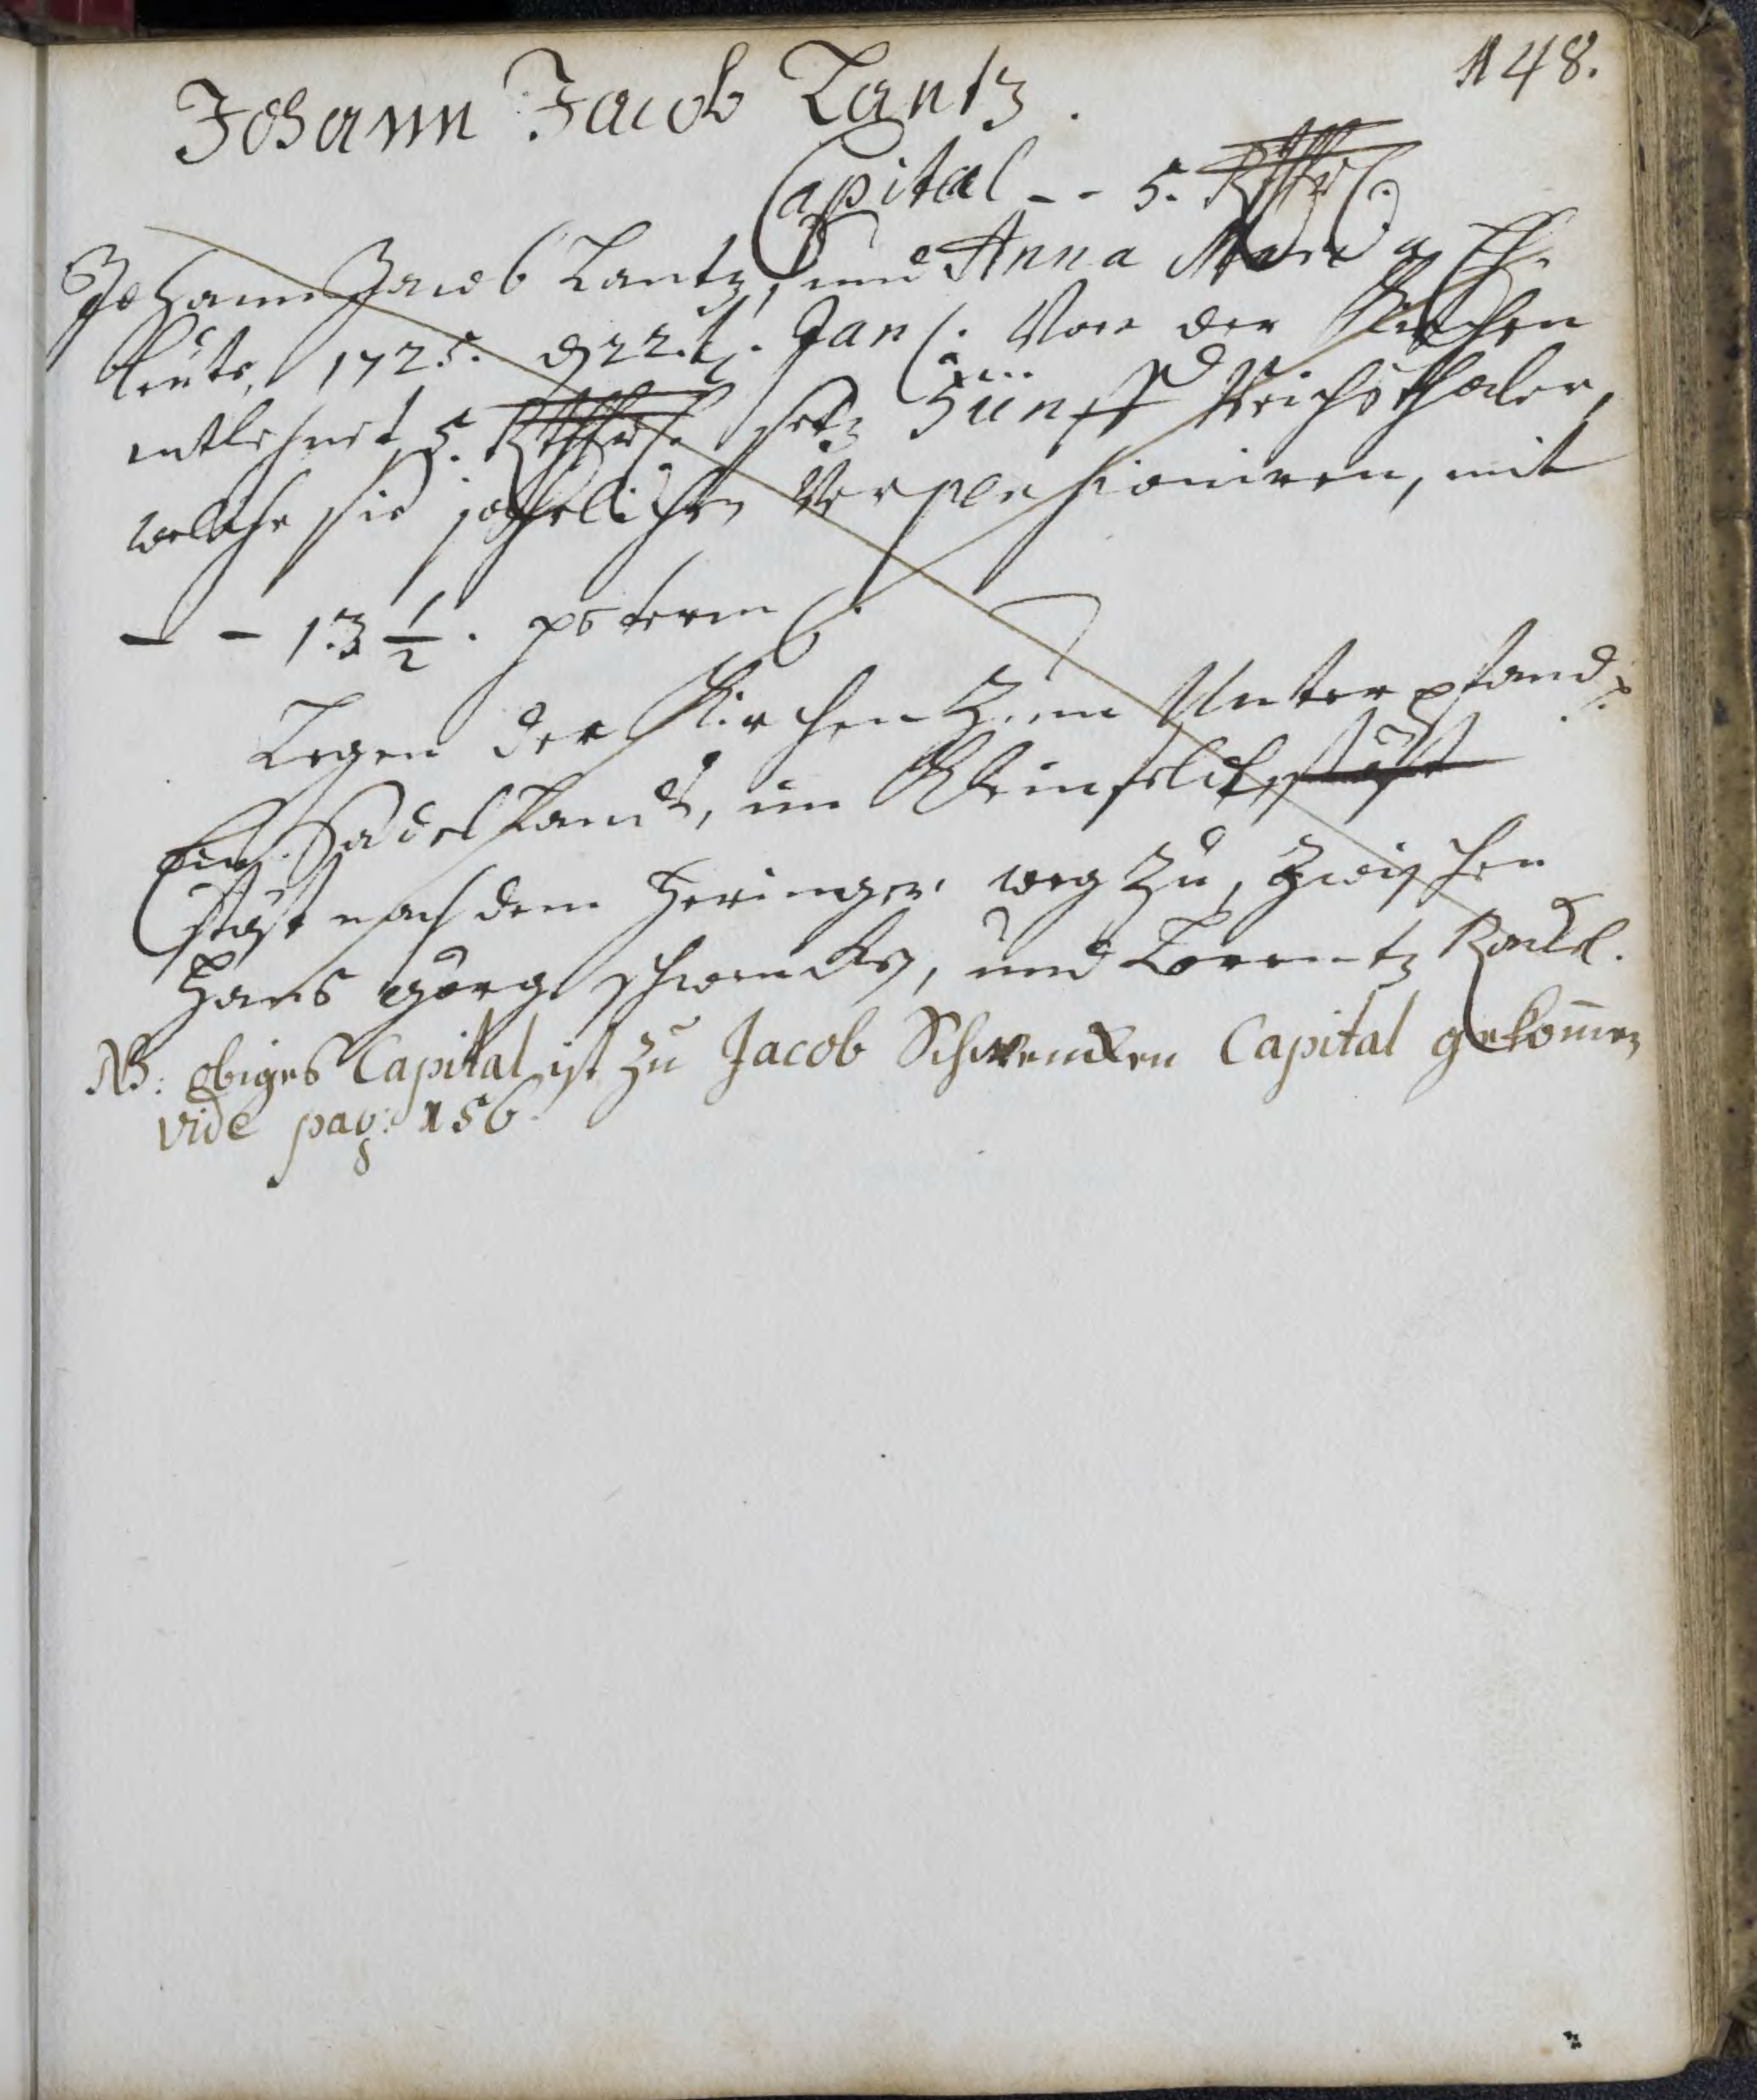 148.
Johann Jacob Lantz.
Capital -- 5. Rthlr.
Johann Jacob Lantz, und Anna Maria, Ehe-
leute, 1725. d 22.t. Jan. Von der Kirchen
entlehnet 5. Rthlr. Fünff Reichsthaler,
welche sie jährlichen Verpensioniren, mit
- - 13 1/2.
Legen der Kirchen Zum Unterpfandt:
Ein Sadel Landt, im
stöst nach dem Heringer weg Zu, Zwischen
Hans Görg Schwencken, und Lorentz
NB: obiges Capital ist zu Jacob Schwencken Capital gekomen
vide pag: 156.